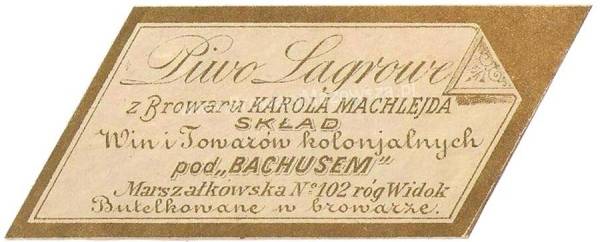 Piwo Lagrowe
z Browaru KAROLA MACHLEJDA
SKŁAD
Win i Towarów kolonjalnych
pod „BACHUSEM”
Marszałkowska No 102 róg Widok
Butelkowane w browarze.